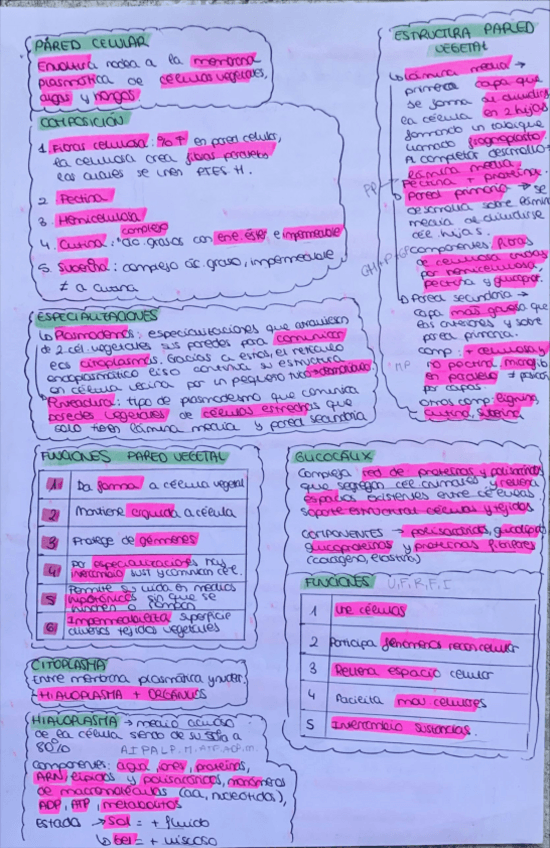 PARED CELULAR
Envoltura rodea a la membrana
plasmática de células vegetales,
algas y hongos.
COMPOSICIÓN
1. Fibras celulosa: % + en pared celular,
la celulosa crea fibras paralelas
las cuales se unen PTES H.
2. Pectina
3. Hemicelulosa
4. Cutina: complejo ác. grasos con enl. éster e impermeable
5. Suberina: complejo ác. graso, impermeable
≠ a cutina
ESPECIALIZACIONES
Plasmodemos: especializaciones que atraviesan
de 2 cél. vegetales sus paredes para comunicar
los citoplasmas. Gracias a estos, el retículo
endoplasmático liso continua su estructura
con célula vecina por un pequeño tubo →
Punteadura: tipo de plasmodesmo que comunica
paredes vegetales de células estrechas que
solo tienen lámina media y pared secundaria
FUNCIONES PARED VEGETAL
1 Da forma a célula vegetal
2 Mantiene erguida a célula
3 Protege de gérmenes
4 Por especializaciones hay
intercambio sust. y comunican
5 Permite su vida en medios
hipotónicos sin que se
hinchen o rompan
6 Impermeabiliza superficie
diversos tejidos vegetales
CITOPLASMA
Entre membrana plasmática y nuclear.
HIALOPLASMA + ORGÁNULOS
HIALOPLASMA → medio acuoso
de la célula siendo de su a
80%
componentes: agua, iones, proteínas,
ARN, lípidos y polisacáridos, monómeros
de macromoléculas (aa, nucleótidos),
ADP, ATP, metabolitos
Estada → sol = + fluido
gel = + viscoso
ESTRUCTURA PARED
VEGETAL
Lámina media →
primera capa que
se forma al dividirse
la célula en 2 hijas
formando un tabique
llamado fragmoplasto
Al completar desarrollo →
lámina media.
Pectina + proteína.
Pared primaria → se
desarrolla sobre lámina
media al dividirse
cel. hijas.
componentes: fibras
de celulosa unidas
por hemicelulosa,
pectina y glucopr.
Pared secundaria →
capa más gruesa que
las anteriores y sobre
pared primaria.
comp: + celulosa y
no pectina,
en paralelo
por capas.
otros comp: lignina,
cutina, suberina
GLICOCÁLIX
Compleja red de proteínas y polisacáridos
que segregan cél. animales y rellena
espacios existentes entre células.
soporte estructural células y tejidos
COMPONENTES → polisacáridos, glucolípidos,
glucoproteínas y proteínas fibrilares
(colágeno, elastina)
FUNCIONES U, F, R, F, I
1 Une células
2 Participa fenómenos recon. celular
3 Rellena espacio celular
4 Facilita mov. celulares
5 Intercambio sustancias.